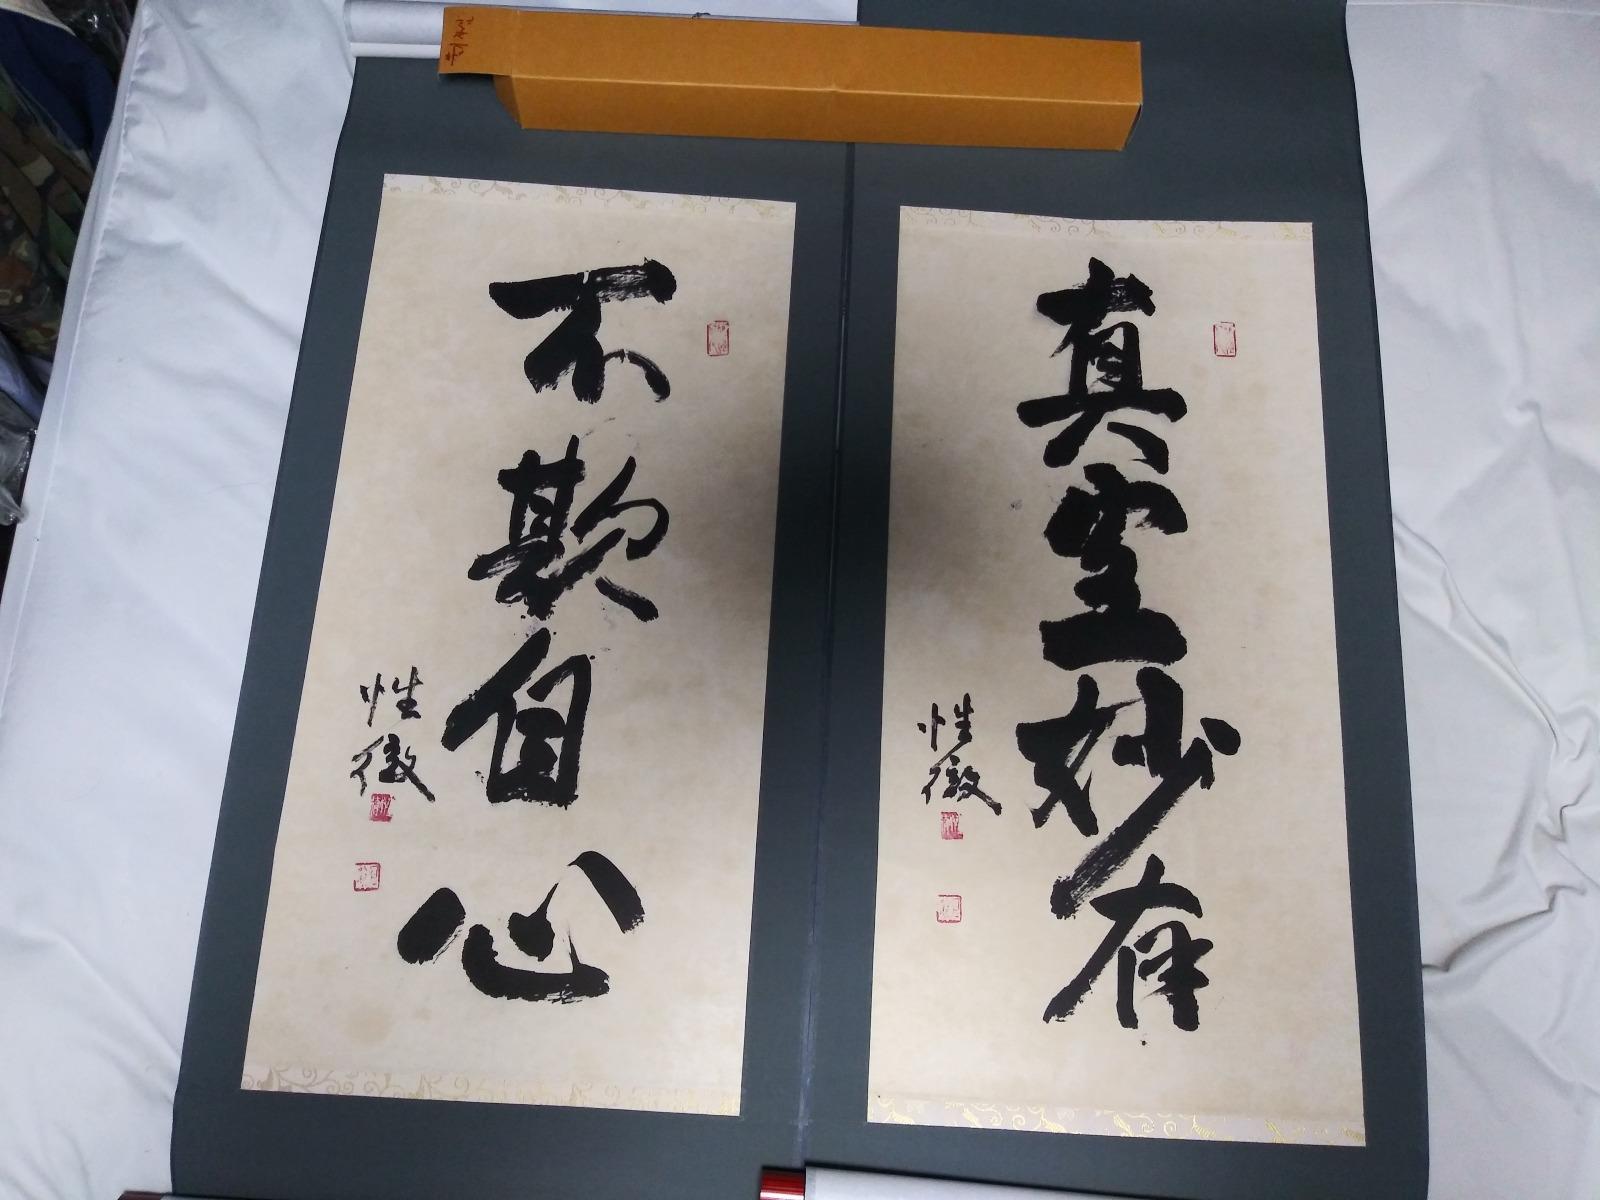 真空妙有
性徹
不欺自心
性徹